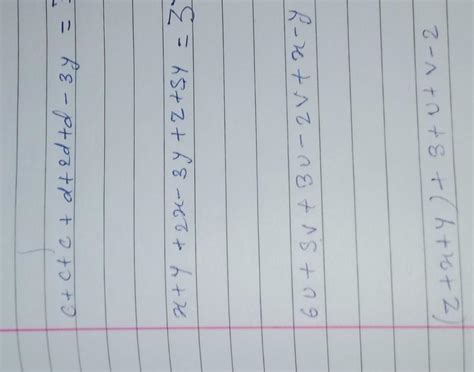 c+c+c+d+2d+d-3y =
x+y+2x-3y+z+5y = 3
6u+5v+3u-2v+x-y
(z+x+y)+3+u+v-2